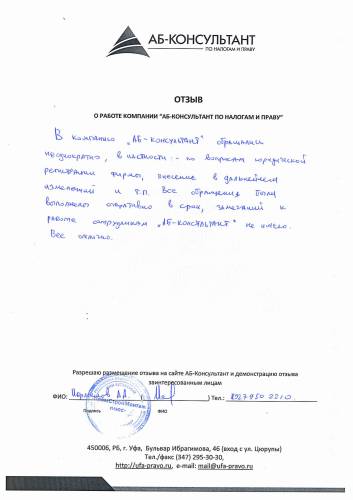 АБ-КОНСУЛЬТАНТ
ПО НАЛОГАМ И ПРАВУ
ОТЗЫВ
О РАБОТЕ КОМПАНИИ "АБ-КОНСУЛЬТАНТ ПО НАЛОГАМ И ПРАВУ"
В компанию „АБ-Консультант" обращались
неоднократно, в частности - по вопросам юридической
регистрации фирмы, внесение в дальнейшем
изменений и т.п. Все обращения были
выполнены оперативно в срок, замечаний к
работе сотрудников „АБ-КОНСУЛЬТАНТ" не имею.
Все отлично.
Разрешаю размещение отзыва на сайте АБ-Консультант и демонстрацию отзыва
заинтересованным лицам
ФИО: А.А. ( ) Тел.: 8927950 2210
Подпись ФИО
450006, РБ, г. Уфа, Бульвар Ибрагимова, 46 (вход с ул. Цюрупы)
Тел./факс (347) 295-30-30,
http://ufa-pravo.ru, e-mail: mail@ufa-pravo.ru